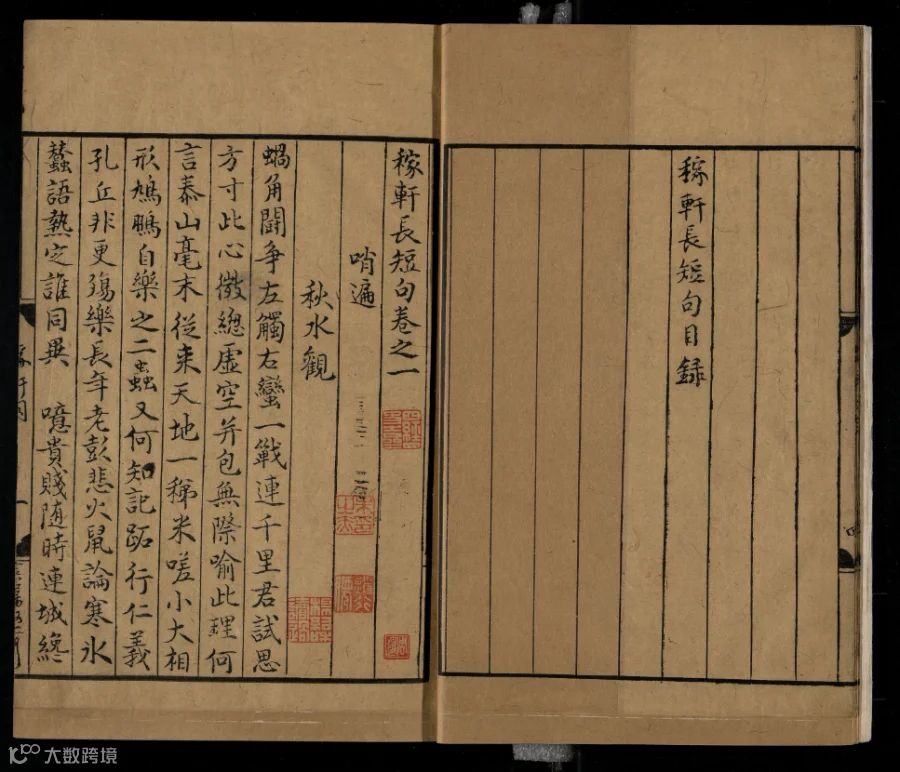 稼軒長短句目録
稼軒長短句卷之一
哨遍
秋水觀
蝸角鬭争左觸右蠻一戰連千里君試思
方寸此心微總虚空并包無際喻此理何
言泰山毫末從来天地一稊米嗟小大相
形鳩鵬自樂之二蟲又何知記跖行仁義
孔丘非更殤樂長年老彭悲火鼠論寒氷
蠶語熱定誰同異 噫貴賤随時連城纔
大数跨境